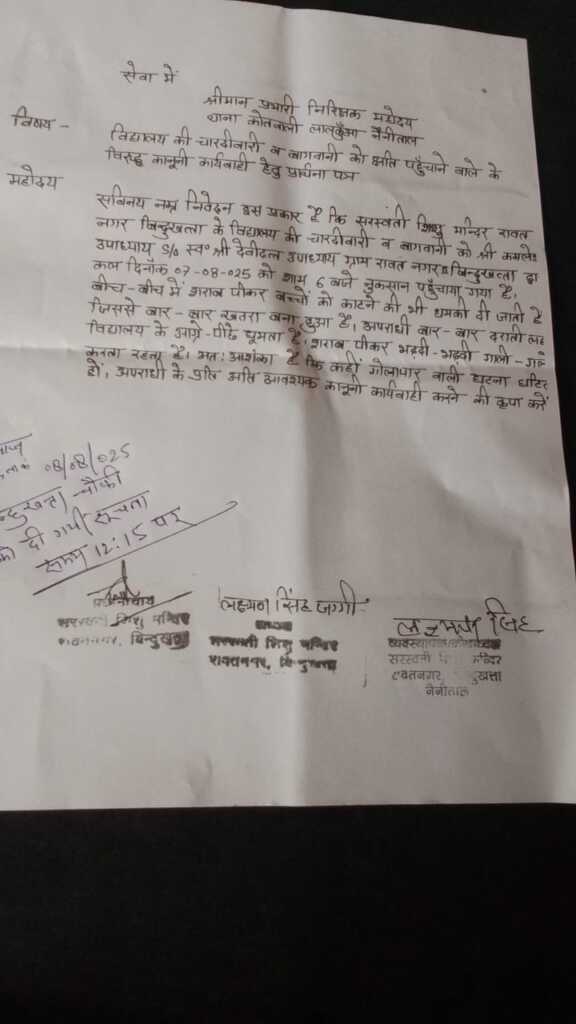 सेवा में
श्रीमान प्रभारी निरिक्षक महोदय
थाना कोतवाली लालकुँआ नैनीताल
विषय - विद्यालय की चारदीवारी व बागवानी को क्षति पहुँचाने वाले के
विरुद्ध कानूनी कार्यवाही हेतु प्रार्थना पत्र
महोदय
सविनय नम्र निवेदन इस प्रकार है कि सरस्वती शिशु मन्दिर रावत
नगर बिन्दुखत्ता के विद्यालय की चारदीवारी व बागवानी को श्री कमलेश
उपाध्याय S/o स्व० श्री देवीदत्त उपाध्याय ग्राम रावत नगर बिन्दुखत्ता द्वा
कल दिनाँक 07-08-025 को शाम 6 बजे नुकसान पहुँचाया गया है,
बीच-बीच में शराब पीकर बच्चों को काटने की भी धमकी दी जाती है
जिससे बार-बार खतरा बना हुआ है, अपराधी बार-बार दराती लेक
विद्यालय के आगे-पीछे घूमता है, शराब पीकर भद्दी-भद्दी गाली-गल
करता रहता है। अतः आशंका है कि कहीं गोलापार वाली घटना घटित
हो, अपराधी के प्रति अति आवश्यक कानूनी कार्यवाही करने की कृपा करें
08/08/025
चौकी
को दी गयी सूचना
समय 12:15 पर
प्रधानाचार्य
सरस्वती शिशु मन्दिर
रावतनगर, बिन्दुखत्ता
लक्ष्मण सिंह जग्गी
सरस्वती शिशु मन्दिर
रावतनगर, बिन्दुखत्ता
सिंह
सरस्वती मन्दिर
नैनीताल